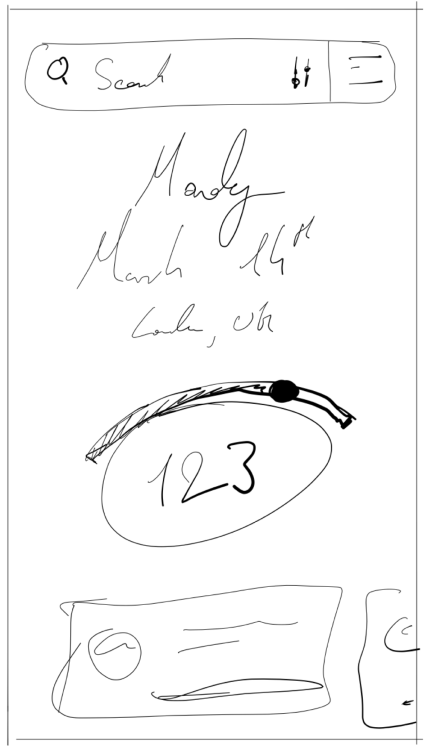 Search
Monday
March 14th
London, UK
123